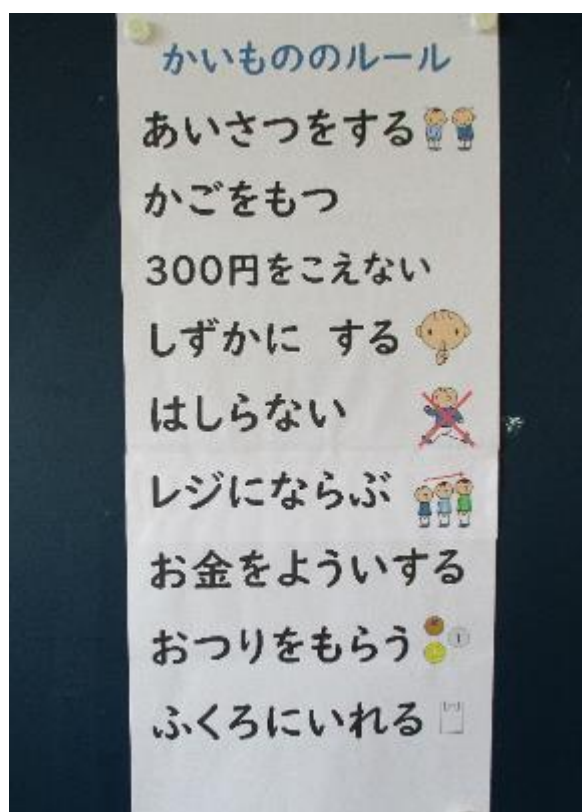 かいもののルール
あいさつをする
かごをもつ
300円をこえない
しずかに する
はしらない
レジにならぶ
お金をよういする
おつりをもらう
ふくろにいれる